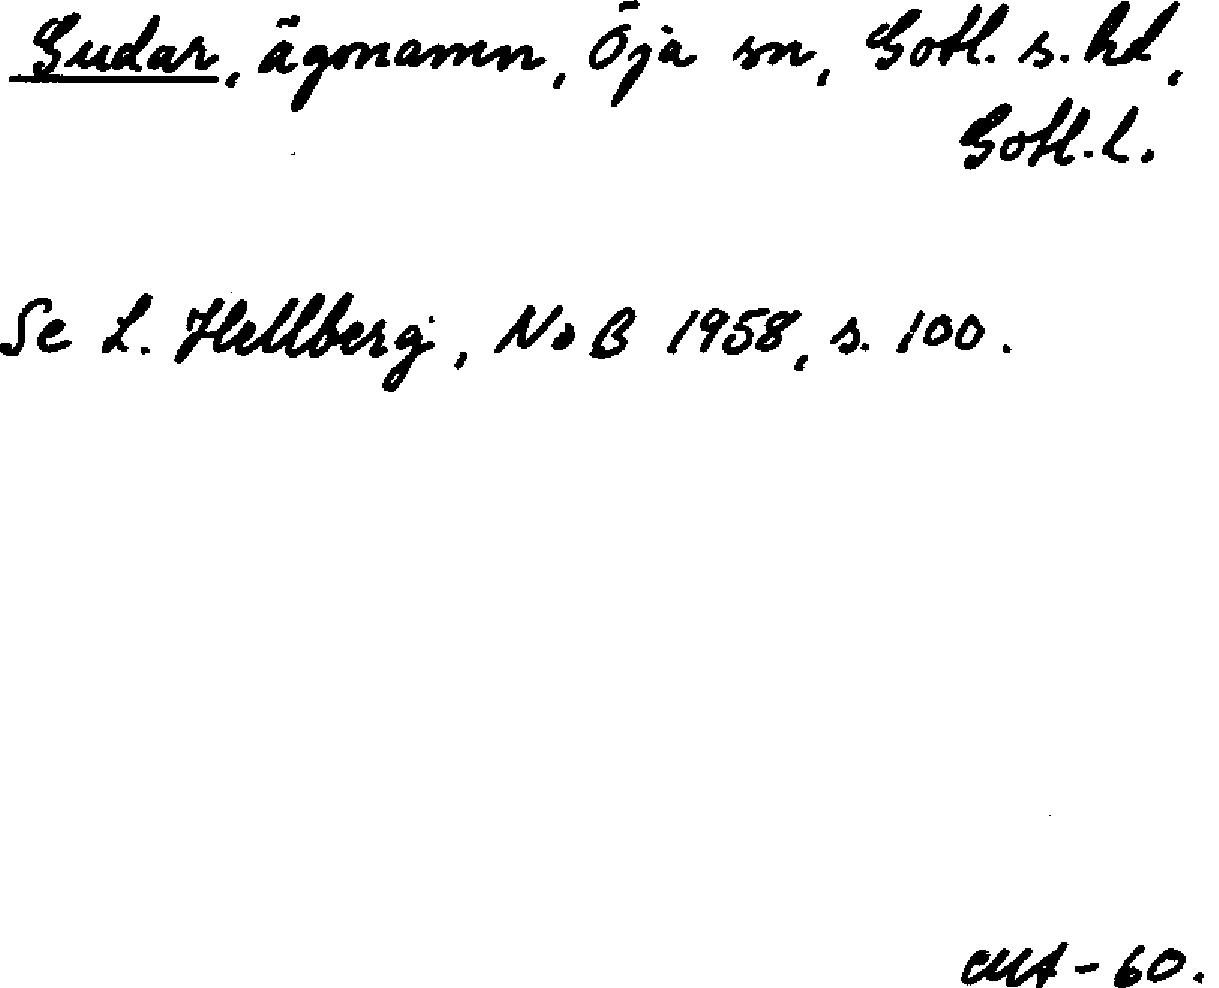 Gudar, ägonamn, Öja sn, Gotl. s. hd,
Gotl. l.
Se L. Hellberg, NoB 1958, s. 100.
MA - 60.